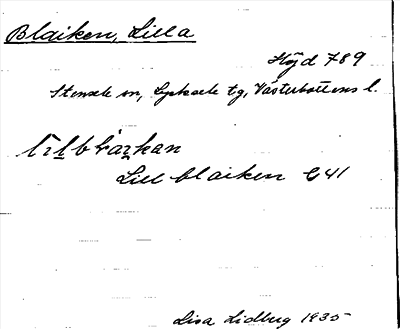 Blaiken, Lilla
Höjd 789
Stensele sn, Lycksele tg, Västerbottens l.
Lill blaiken C41
Lisa Lidberg 1935